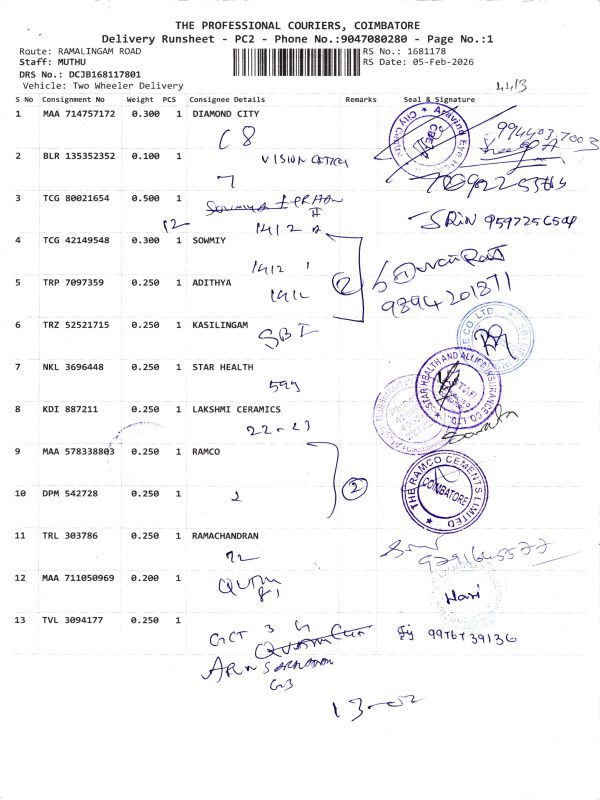 THE PROFESSIONAL COURIERS, COIMBATORE
Delivery Runsheet - PC2 - Phone No.:9047080280 - Page No.:1
Route: RAMALINGAM ROAD RS No.: 1681178
Staff: MUTHU RS Date: 05-Feb-2026
DRS No.: DCJB168117801
Vehicle: Two Wheeler Delivery
S No Consignment No Weight PCS Consignee Details Remarks Seal & Signature
1 MAA 714757172 0.300 1 DIAMOND CITY
C 8
2 BLR 135352352 0.100 1
VISION
7
3 TCG 80021654 0.500 1
12 1412
4 TCG 42149548 0.300 1 SOWMIY
1412
5 TRP 7097359 0.250 1 ADITHYA
1412
2
9894201871
6 TRZ 52521715 0.250 1 KASILINGAM
SBI
7 NKL 3696448 0.250 1 STAR HEALTH
599
STAR HEALTH AND ALLIED INSURANCE CO. LTD.
8 KDI 887211 0.250 1 LAKSHMI CERAMICS
22-23
9 MAA 578338803 0.250 1 RAMCO
10 DPM 542728 0.250 1
2
2
THE RAMCO CEMENTS LIMITED
COIMBATORE
11 TRL 303786 0.250 1 RAMACHANDRAN
72
12 MAA 711050969 0.200 1
Hari
13 TVL 3094177 0.250 1
GCT 3 9976739136
G3
13-02